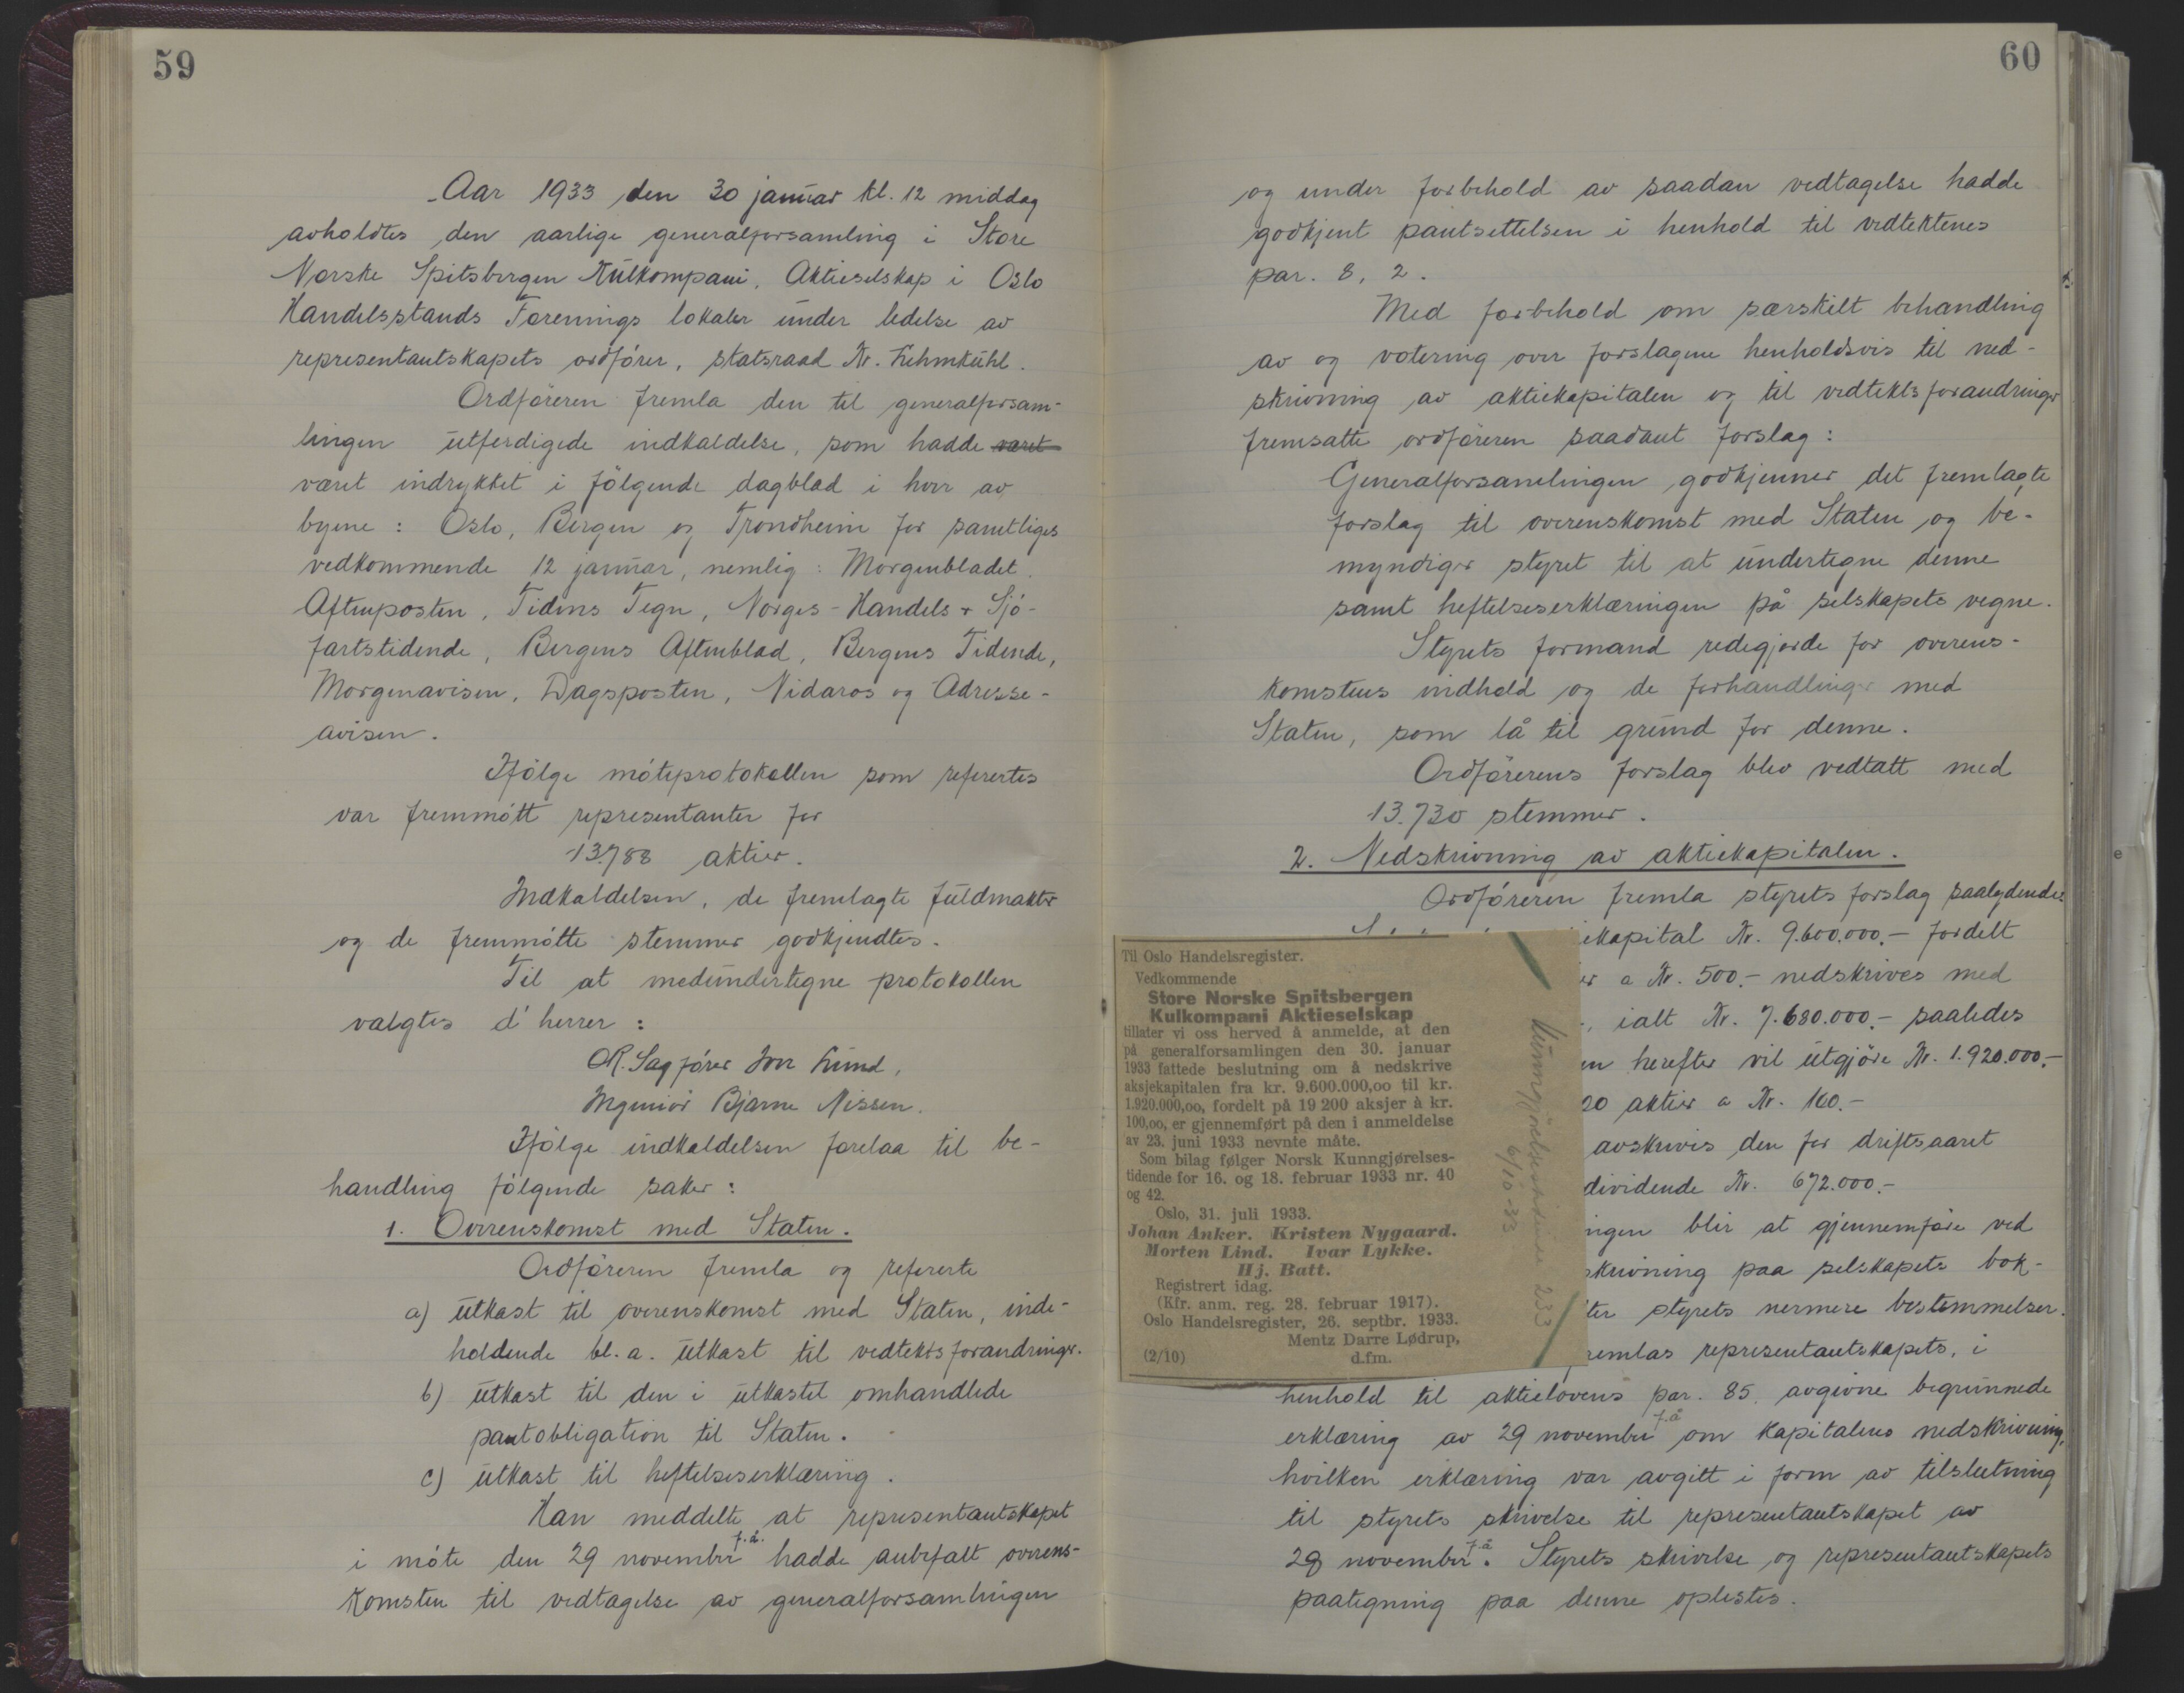 59
Aar 1933 den 30 januar kl. 12 middag
avholdtes den aarlige generalforsamling i Store
Norske Spitsbergen Kulkompani, Aktieselskap i Oslo
Handelsstands Forenings lokaler under ledelse av
representantskapets ordfører, statsraad Kr. Lehmkuhl.
Ordføreren fremla den til generalforsam-
lingen utferdigede indkaldelse, som hadde været
været indrykket i følgende dagblad i hver av
byene : Oslo, Bergen og Trondheim for samtliges
vedkommende 12 januar, nemlig : Morgenbladet,
Aftenposten, Tidens Tegn, Norges-Handels + Sjø-
fartstidende, Bergens Aftenblad, Bergens Tidende,
Morgenavisen, Dagsposten, Nidaros og Adresse-
avisen.
Ifølge møteprotokollen som referertes
var fremmøtt representanter for
13.788 aktier.
Indkaldelsen, de fremlagte fuldmakter
og de fremmøtte stemmer godkjendtes.
Til at medundertegne protokollen
valgtes d'herrer :
O.R. Sagfører Iver Lund,
Ingeniør Bjarne Nissen.
Ifølge indkaldelsen forelaa til be-
handling følgende saker :
1. Overenskomst med Staten.
Ordføreren fremla og refererte
a) utkast til overenskomst med Staten, inde-
holdende bl. a. utkast til vedtektsforandringer.
b) utkast til den i utkastet omhandlede
pantobligation til Staten.
c) utkast til heftelseserklæring.
Han meddelte at representantskapet
i møte den 29 november f.å. hadde anbefalt overens-
komsten til vedtagelse av generalforsamlingen
60
og under forbehold av saadan vedtagelse hadde
godkjent pantsettelsen i henhold til vedtektenes
par. 8, 2.
Med forbehold om særskilt behandling
av og votering over forslagene henholdsvis til ned-
skrivning av aktiekapitalen og til vedtektsforandringer
fremsatte ordføreren saadant forslag :
Generalforsamlingen godkjenner det fremlagte
forslag til overenskomst med Staten og be-
myndiger styret til at undertegne denne
samt heftelseserklæringen på selskapets vegne.
Styrets formand redegjorde for overens-
komstens indhold og de forhandlinger med
Staten, som lå til grund for denne.
Ordførerens forslag blev vedtatt med
13.730 stemmer.
2. Nedskrivning av aktiekapitalen.
Ordføreren fremla styrets forslag saalydende:
ekapital Kr. 9.600.000.- fordelt
er a Kr. 500.- nedskrives med
-, ialt Kr. 7.680.000.- saaledes
en herefter vil utgjøre Kr. 1.920.000.-
00 aktier a Kr. 100.-
avskrives den for driftsaaret
dividende Kr. 672.000.-
ingen blir at gjennemføre ved
skrivning paa selskapets bok-
ter styrets nermere bestemmelser.
remlas representantskapets, i
henhold til aktielovens par. 85, avgivne begrunnede
erklæring av 29 november f.å om kapitalens nedskrivning,
hvilken erklæring var avgitt i form av tilslutning
til styrets skrivelse til representantskapet av
29 november f.å. Styrets skrivelse og representantskapets
paategning paa denne oplestes.
Til Oslo Handelsregister.
Vedkommende
Store Norske Spitsbergen
Kulkompani Aktieselskap
tillater vi oss herved å anmelde, at den
på generalforsamlingen den 30. januar
1933 fattede beslutning om å nedskrive
aksjekapitalen fra kr. 9.600.000,oo til kr.
1.920.000,oo, fordelt på 19 200 aksjer à kr.
100,oo, er gjennemført på den i anmeldelse
av 23. juni 1933 nevnte måte.
Som bilag følger Norsk Kunngjørelses-
tidende for 16. og 18. februar 1933 nr. 40
og 42.
Oslo, 31. juli 1933.
Johan Anker. Kristen Nygaard.
Morten Lind. Ivar Lykke.
Hj. Batt.
Registrert idag.
(Kfr. anm. reg. 28. februar 1917).
Oslo Handelsregister, 26. septbr. 1933.
Mentz Darre Lødrup,
(2/10) d.fm.
Kunngjørelsestidende 233
6/10-33